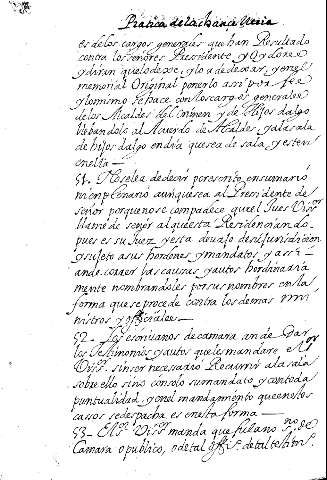 Pratica de la chancilleria
es de los cargos generales que han Resultado
contra los señores Pressidente, y Oydores
y diran que lo dexe, y lo a de dexar, y en el
memorial Original ponerlo assi por fee
y lo mismo se hace con los cargos generales
de los Alcaldes del Crimen y de Hijos dalgo
llebandolo al Acuerdo de Alcaldes y a la sala
de hijos dalgo en dia que sea de sala, y esten
en ella —
51. No se le a de decir por esento en sumario
ni en plenario aunque sea al Presidente de
señor porque no se compadece que el Jues Vissr
llame de señor al que esta Residenciando
pues es su Juez, y esta devajo de su jurisdicion
y sujeto a sus hordenes y mandatos y assi
ande correr las causas y autos hordinaria
mente nombrandoles por sus nombres en la
forma que se procede contra los demas mi
nistros y officiales —
52 — Los escrivanos de camara an de Dar
los testimonios y autos que les mandare el Sor
Vissr sin ser necessario Recurrir a la sala
sobre ello sino con solo su mandato y con toda
puntualidad. y en el mandamiento que en estos
cassos se despacha es en esta forma —
53 — El Sr Vissr manda que fulano no de
Camara o publico, o de tal offio de tal testimo